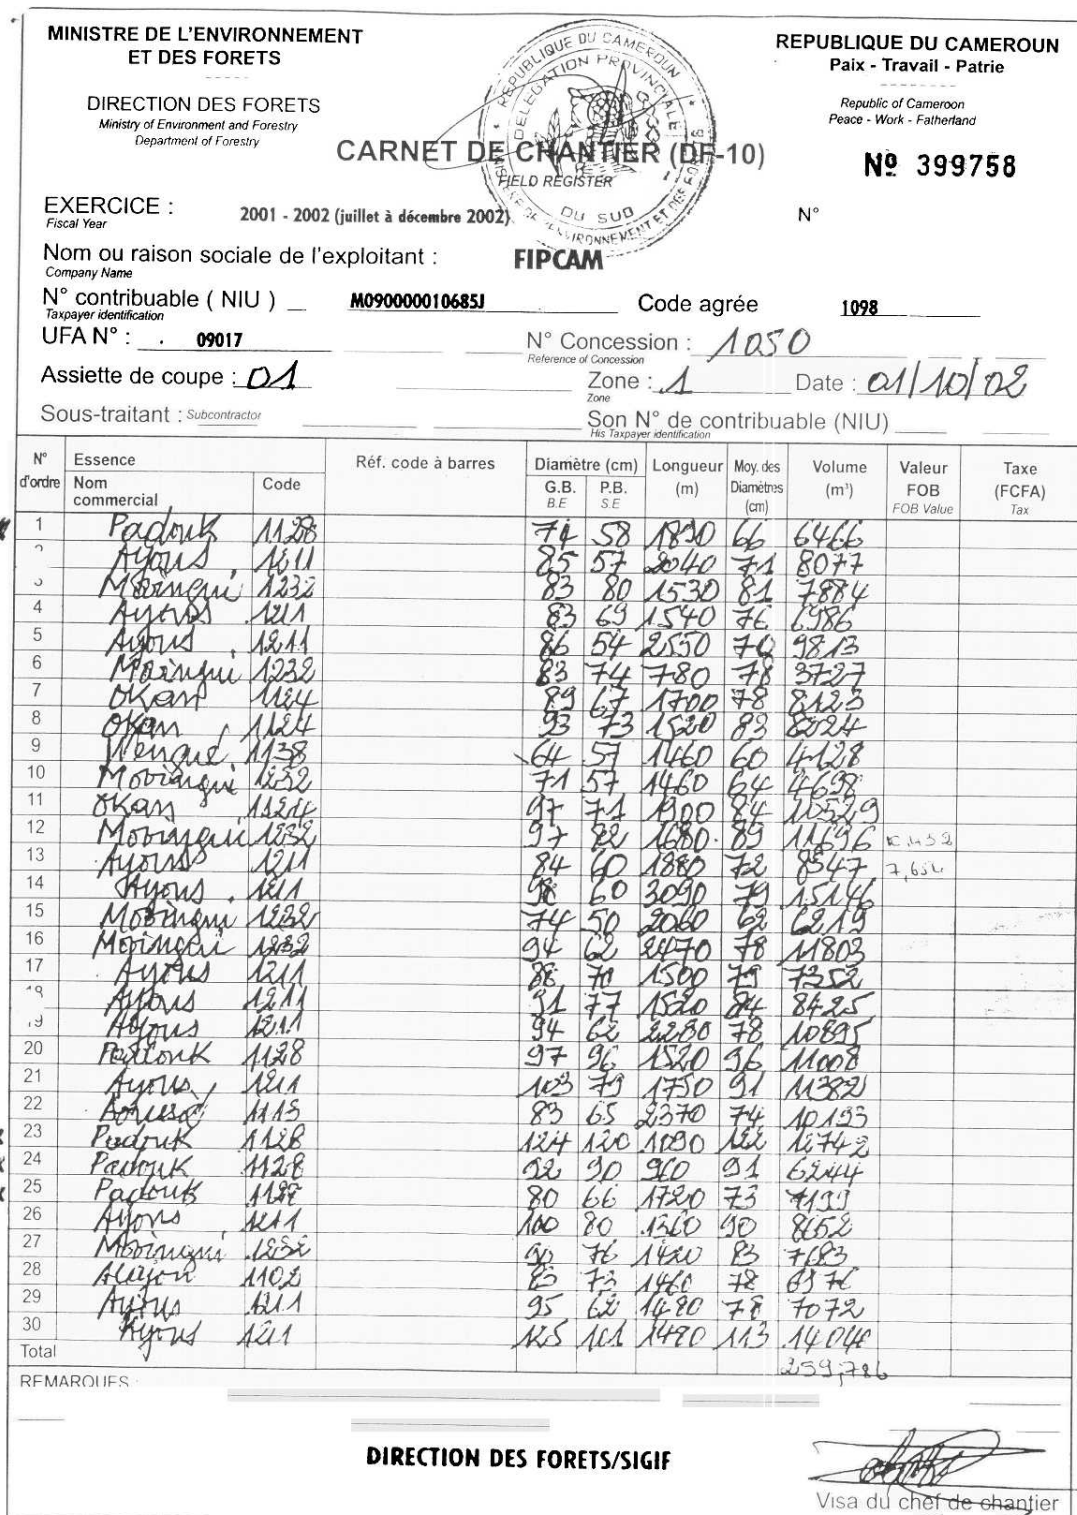 MINISTRE DE L'ENVIRONNEMENT
ET DES FORETS
REPUBLIQUE DU CAMEROUN
Paix - Travail - Patrie
DIRECTION DES FORETS
Ministry of Environment and Forestry
Department of Forestry
Republic of Cameroon
Peace - Work - Fatherland
REPUBLIQUE DU CAMEROUN
DELEGATION PROVINCIALE
DU SUD
CARNET DE CHANTIER (DF-10)
FIELD REGISTER
Nº 399758
EXERCICE : 2001 - 2002 (juillet à décembre 2002) N°
Fiscal Year
Nom ou raison sociale de l'exploitant : FIPCAM
Company Name
N° contribuable ( NIU ) M090000010685J Code agrée 1098
Taxpayer identification
UFA N° : 09017 N° Concession : 1050
Reference of Concession
Assiette de coupe : 01 Zone : 1 Date : 01/10/02
Zone
Sous-traitant : Subcontractor Son N° de contribuable (NIU)
His Taxpayer identification
N° d'ordre Essence Réf. code à barres Diamètre (cm) Longueur (m) Moy. des Diamètres (cm) Volume (m³) Valeur FOB Taxe (FCFA)
Nom commercial Code G.B. P.B. FOB Value Tax
B.E S.E
1 Padouk 1128 74 58 1890 66 6466
Ayous 1211 85 57 2040 71 8077
Movingui 1232 83 80 1530 81 7884
4 Ayous 1211 83 69 1540 76 6986
5 Ayous 1211 86 54 2550 70 9813
6 Movingui 1232 83 74 780 78 3727
7 Okan 1124 89 67 1700 78 8123
8 Okan 1124 93 73 1520 83 8224
9 Wengué 1138 64 57 1460 60 4128
10 Movingui 1232 71 57 1460 64 4698
11 Okan 1124 97 71 1900 84 10529
12 Movingui 1232 97 82 1680 89 11696
13 Ayous 1211 84 60 1880 72 8547 7,654
14 Ayous 1211 98 60 3090 79 15146
15 Movingui 1232 74 50 2060 62 6219
16 Movingui 1232 94 62 2470 78 11803
17 Ayous 1211 88 70 1500 79 7352
Ayous 1211 91 77 1520 84 8425
Ayous 1211 94 62 2280 78 10895
20 Padouk 1128 97 96 1520 96 11008
21 Ayous 1211 103 79 1750 91 11382
22 1115 83 65 2370 74 10193
23 Padouk 1128 124 120 1090 122 12742
24 Padouk 1128 92 90 960 91 6244
25 Padouk 1128 80 66 1720 73 7199
26 Ayous 1211 100 80 1360 90 8652
27 Movingui 1232 90 76 1420 83 7683
28 1102 83 73 1460 78 6976
29 Ayous 1211 95 62 1480 78 7072
30 Ayous 1211 125 101 1480 113
Total 259,786
REMARQUES :
DIRECTION DES FORETS/SIGIF
Visa du chef de chantier